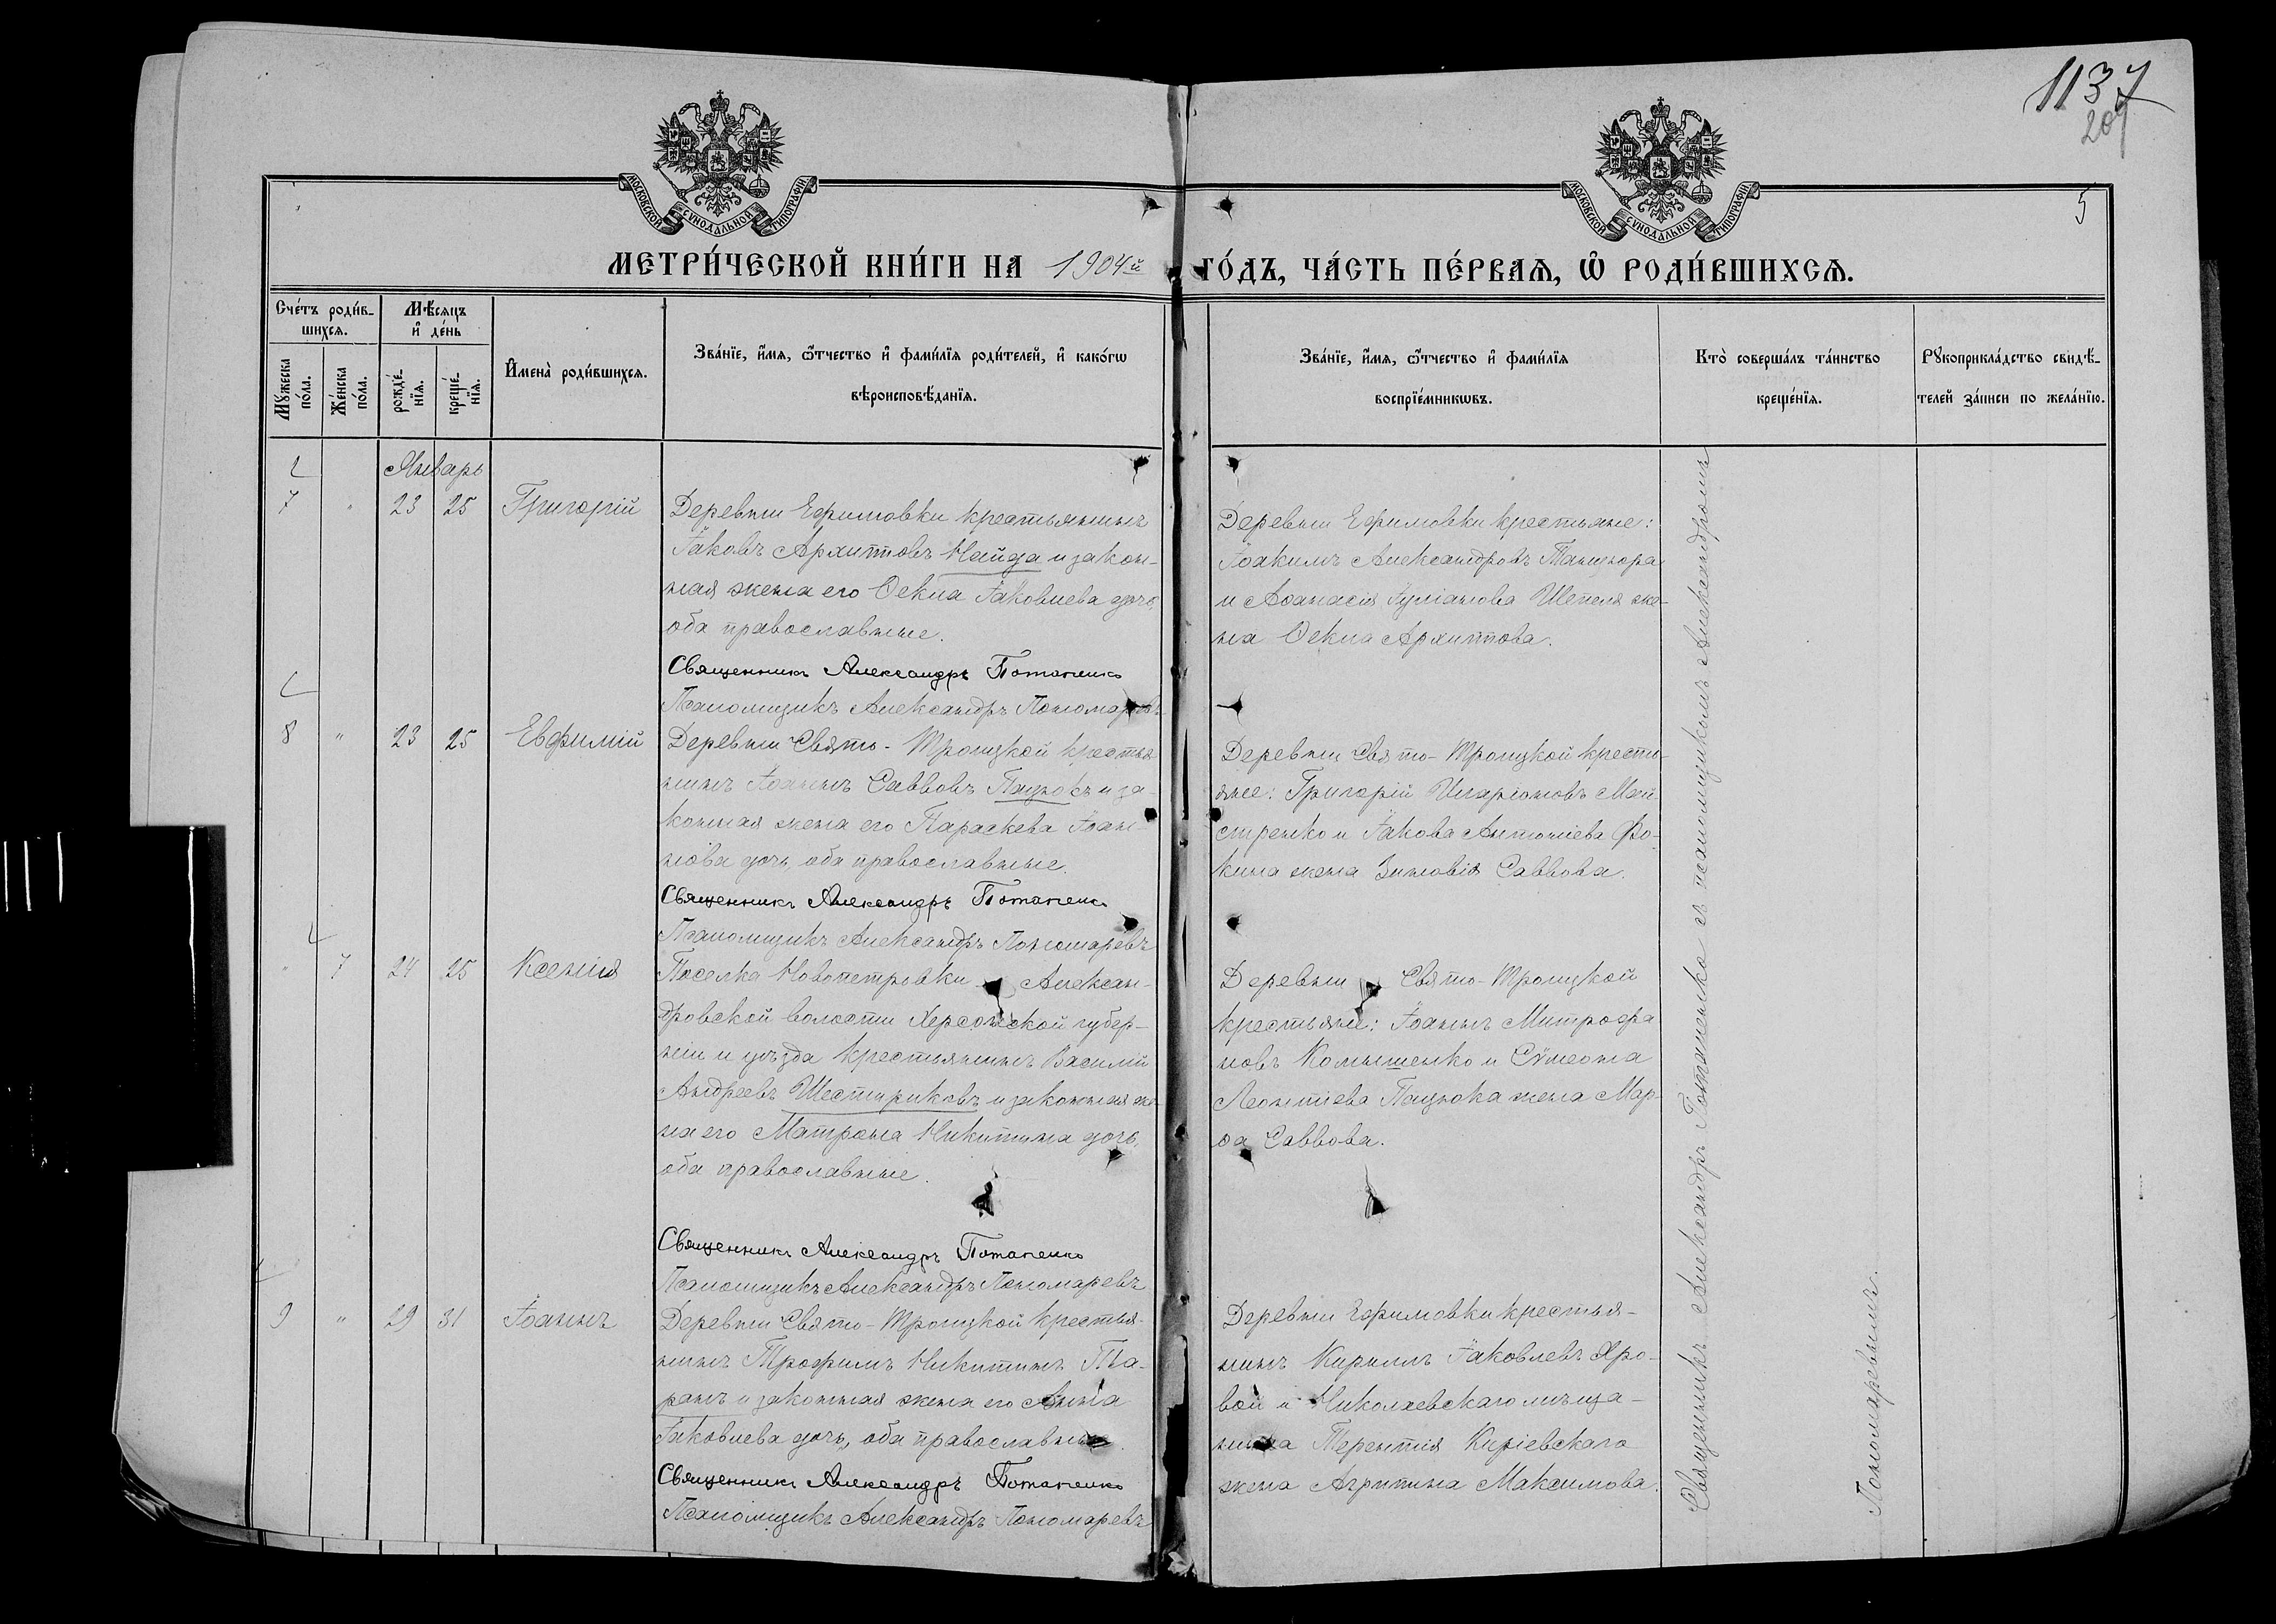 1137
209
5
МОСКОВСКОЙ СУНОДАЛЬНОЙ ТИПОГРАФІИ
МОСКОВСКОЙ СУНОДАЛЬНОЙ ТИПОГРАФІИ
МЕТРИ́ЧЕСКОЙ КНИ́ГИ НА 1904й ГО́ДЪ, ЧА́СТЬ ПЕ́РВАЯ, Ѡ РОДИ́ВШИХСЯ.
Сче́тъ роди́в-
шихся.
Мꙋ́жеска по́ла.
Же́нска по́ла.
Мѣ́сяцъ
и҆ де́нь
рожде́-
нїя.
креще́-
нїя.
И҆мена̀ роди́вшихся.
Зва́нїе, и҆́мя, ѻ҆́тчество и҆ фами́лїя роди́телей, и҆ како́гѡ
вѣроисповѣ́данїя.
Зва́нїе, и҆́мя, ѻ҆́тчество и҆ фами́лїя
воспрїе́мникѡвъ.
Кто̀ соверша́лъ та́инство
креще́нїя.
Рꙋкоприкла́дство свидѣ́-
телей за́писи по жела́нїю.
Январь
7 " 23 25 Григорій
Деревни Ефимовки крестьянинъ
Іаковъ Архиповъ Найда и закон-
ная жена его Ѳекла Іаковлева дочь,
оба православные.
Священникъ Александръ Потапенко
Псаломщикъ Александръ Пономаревъ
Деревни Ефимовки крестьяне:
Іоакимъ Александровъ Танцюра
и Аѳанасія Іуліанова Шепеля же-
на Ѳекла Архиппова.
8 " 23 25 Евфимій
Деревни Свято-Троицкой крестья-
нинъ Іоаннъ Саввовъ Пацюкъ и за-
конная жена его Параскева Іоан-
нова дочь, оба православные.
Священникъ Александръ Потапенко
Псаломщикъ Александръ Пономаревъ
Деревни Свято-Троицкой кресть-
яне: Григорій Иларіоновъ Май-
стренко и Іакова Антоніева Фо-
кина жена Зиновія Саввова.
" 7 24 25 Ксенія
Поселка Новопетровки Алексан-
дровской волости Херсонской губер-
ніи и уѣзда крестьянинъ Василій
Андреевъ Шестириковъ и законная же-
на его Матрона Никитина дочь,
оба православные.
Священникъ Александръ Потапенко
Псаломщикъ Александръ Пономаревъ
Деревни Свято-Троицкой
крестьяне: Іоаннъ Митрофа
новъ Комышенко и Сѵмеона
Леонтіева Пацюка жена Мар-
ѳа Саввова.
9 " 29 31 Іоаннъ
Деревни Свято-Троицкой крестья-
нинъ Трофимъ Никитинъ Та-
ранъ и законная жена его Анна
Іаковлева дочь, оба православные.
Священникъ Александръ Потапенко
Псаломщикъ Александръ Пономаревъ
Деревни Ефимовки крестья-
нинъ Кириллъ Іаковлевъ Яро-
вой и Николаевскаго мѣща-
нина Терентія Киріевскаго
жена Агрипина Максимова.
Священникъ Александръ Потапенко съ псаломщикомъ Александромъ
Пономаревымъ.